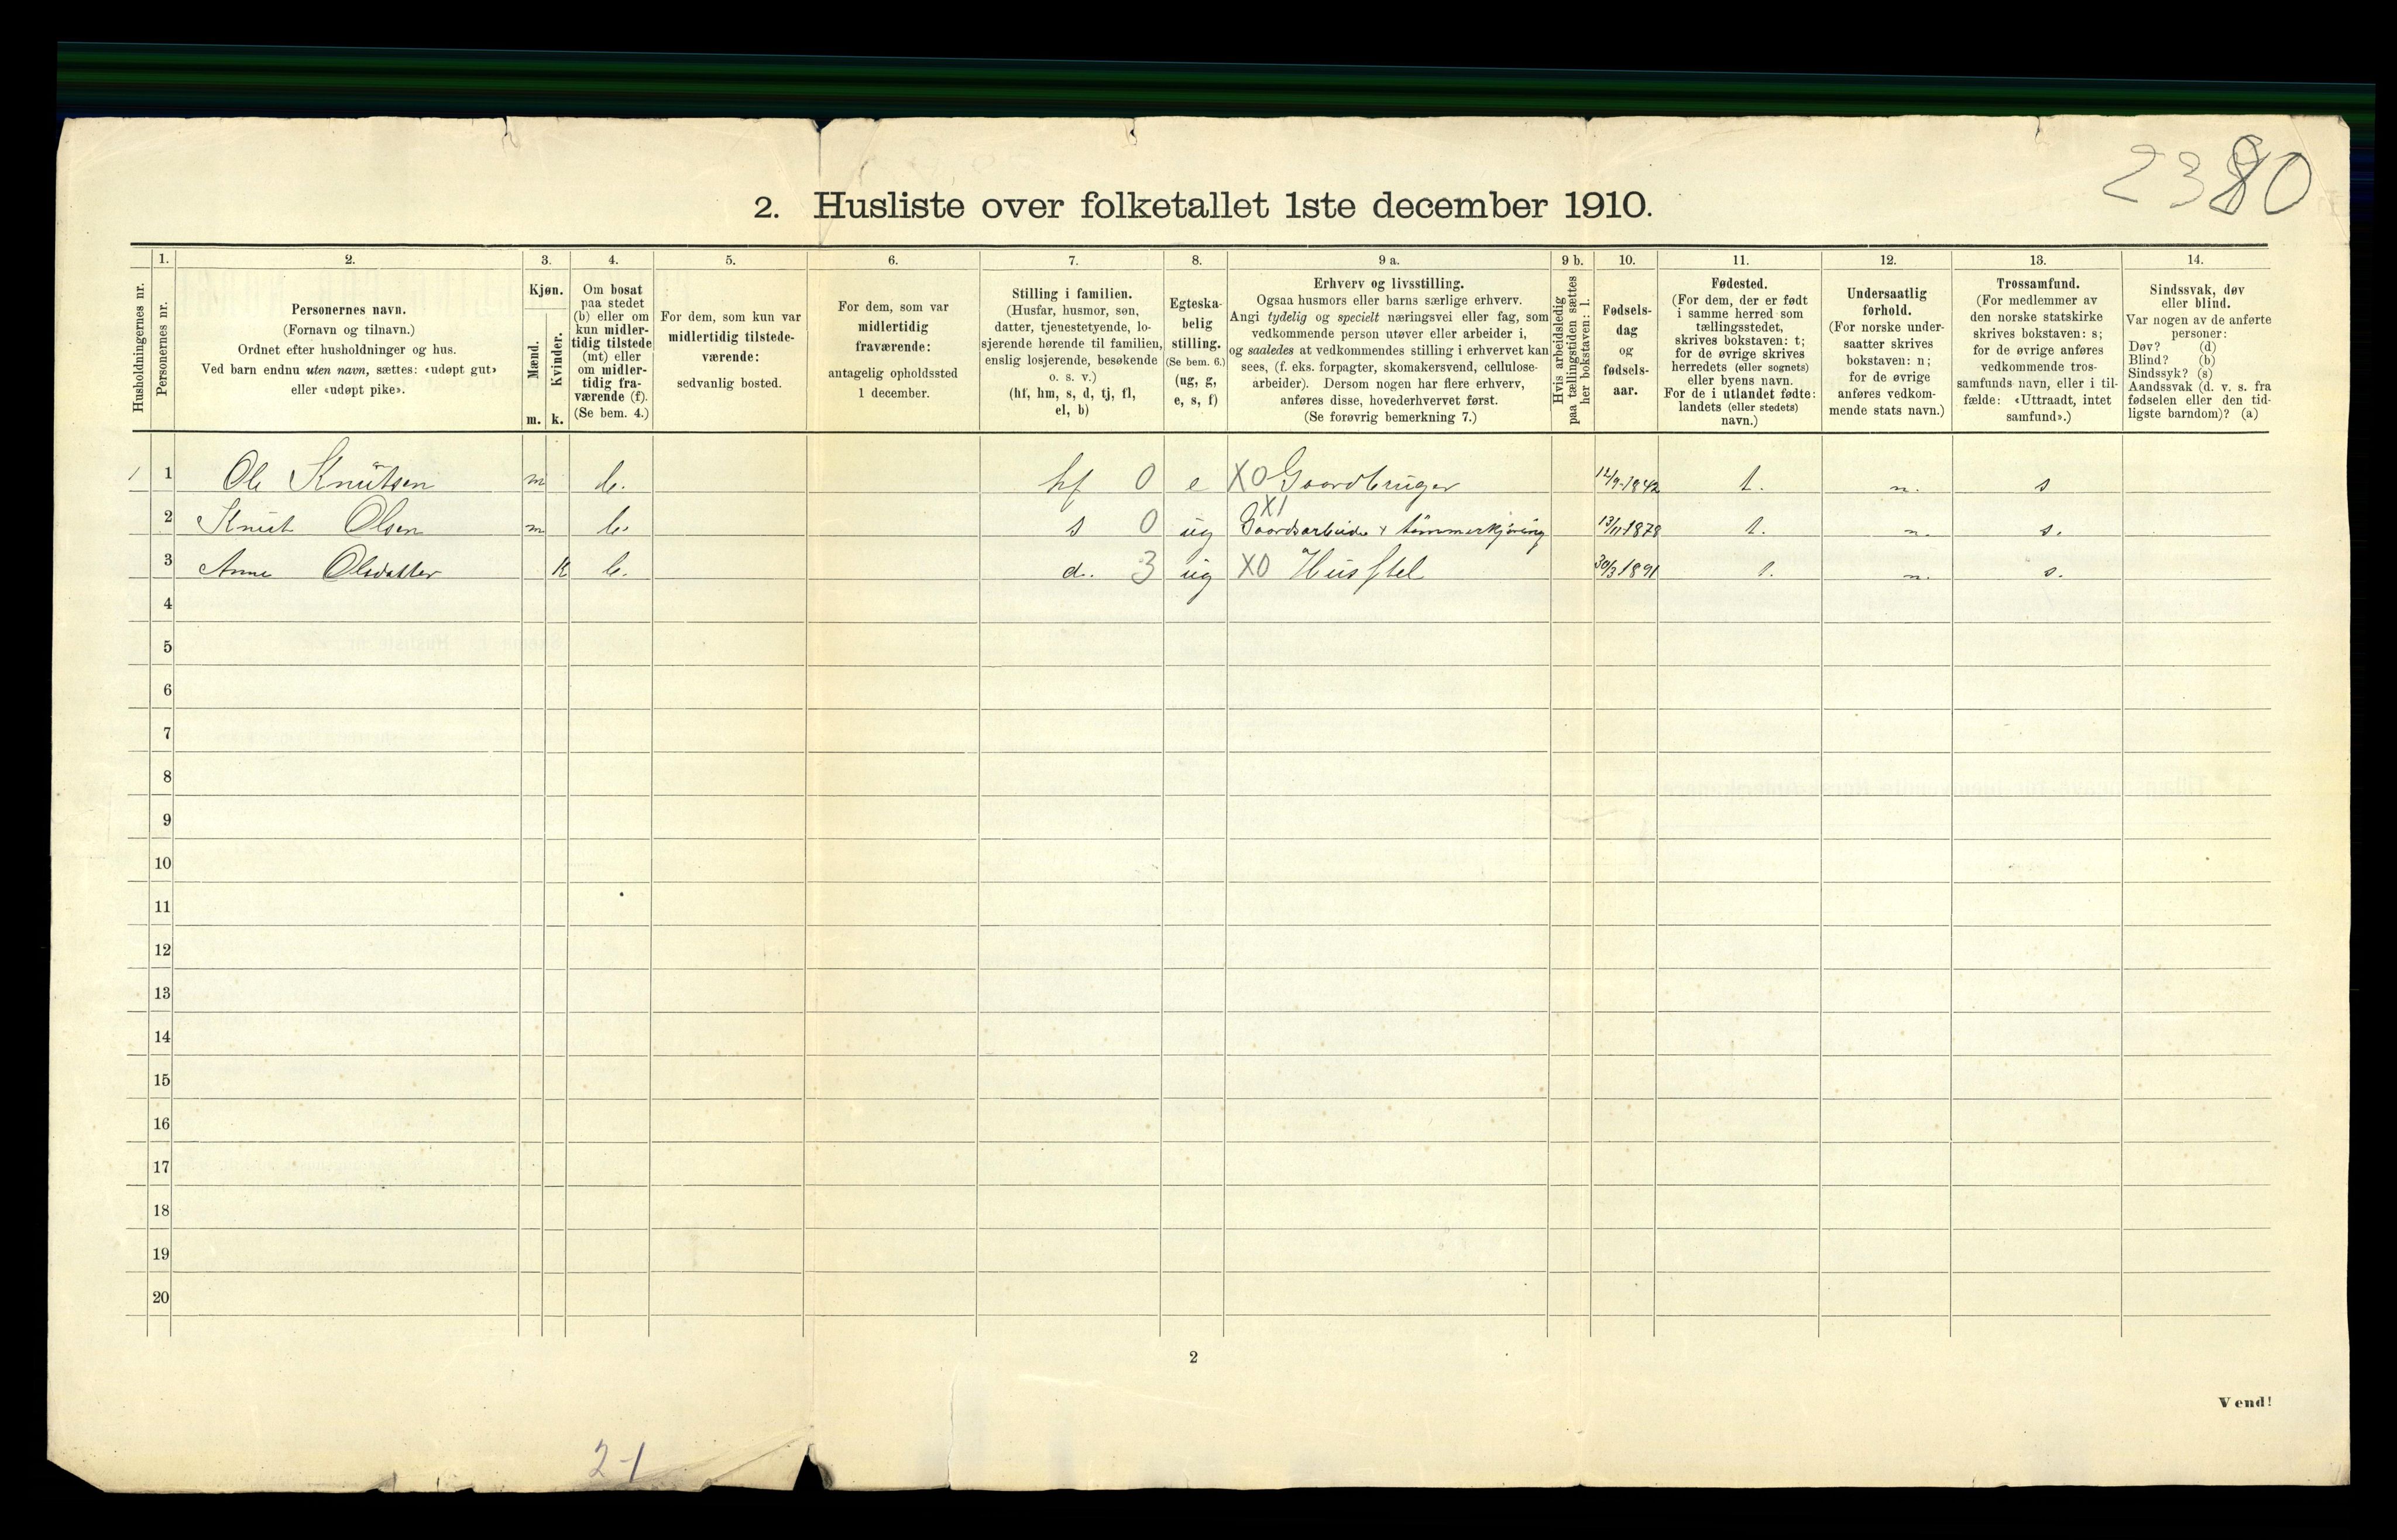 2380
2. Husliste over folketallet 1ste december 1910.
Husholdningernes nr.
1.
Personernes nr.
2.
Personernes navn.
(Fornavn og tilnavn.)
Ordnet efter husholdninger og hus.
Ved barn endnu uten navn, sættes: «udøpt gut»
eller «udøpt pike».
3.
Kjøn.
Mænd.
Kvinder.
m. k.
4.
Om bosat
paa stedet
(b) eller om
kun midler-
tidig tilstede
(mt) eller
om midler-
tidig fra-
værende (f).
(Se bem. 4.)
5.
For dem, som kun var
midlertidig tilstede-
værende:
sedvanlig bosted.
6.
For dem, som var
midlertidig
fraværende:
antagelig opholdssted
1 december.
7.
Stilling i familien.
(Husfar, husmor, søn,
datter, tjenestetyende, lo-
sjerende hørende til familien,
enslig losjerende, besøkende
o. s. v.)
(hf, hm, s, d, tj, fl,
el, b)
8.
Egteska-
belig
stilling.
(Se bem. 6.)
(ug, g,
e, s, f)
9 a.
Erhverv og livsstilling.
Ogsaa husmors eller barns særlige erhverv.
Angi tydelig og specielt næringsvei eller fag, som
vedkommende person utøver eller arbeider i,
og saaledes at vedkommendes stilling i erhvervet kan
sees, (f. eks. forpagter, skomakersvend, cellulose-
arbeider). Dersom nogen har flere erhverv,
anføres disse, hovederhvervet først.
(Se forøvrig bemerkning 7.)
9 b.
Hvis arbeidsledig
paa tællingstiden sættes
her bokstaven: l.
10.
Fødsels-
dag
og
fødsels-
aar.
11.
Fødested.
(For dem, der er født
i samme herred som
tællingsstedet,
skrives bokstaven: t;
for de øvrige skrives
herredets (eller sognets)
eller byens navn.
For de i utlandet fødte:
landets (eller stedets)
navn.)
12.
Undersaatlig
forhold.
(For norske under-
saatter skrives
bokstaven: n;
for de øvrige
anføres vedkom-
mende stats navn.)
13.
Trossamfund.
(For medlemmer av
den norske statskirke
skrives bokstaven: s;
for de øvrige anføres
vedkommende tros-
samfunds navn, eller i til-
fælde: «Uttraadt, intet
samfund».)
14.
Sindssvak, døv
eller blind.
Var nogen av de anførte
personer:
Døv? (d)
Blind? (b)
Sindssyk? (s)
Aandssvak (d. v. s. fra
fødselen eller den tid-
ligste barndom)? (a)
1 1 Ole Knutsen m b. hf 0 e X0 Gaardbruger 12/9-1842 t. n. s
X1
2 Knut Olsen m b. s 0 ug Gaardsarbeide + tømmerkjøring 13/11 1878 t. n. s.
3 Anne Olsdatter K b. d. 3 ug X0 Husstel 30/3 1891 t. n. s.
4
5
6
7
8
9
10
11
12
13
14
15
16
17
18
19
20
2
Vend!
21